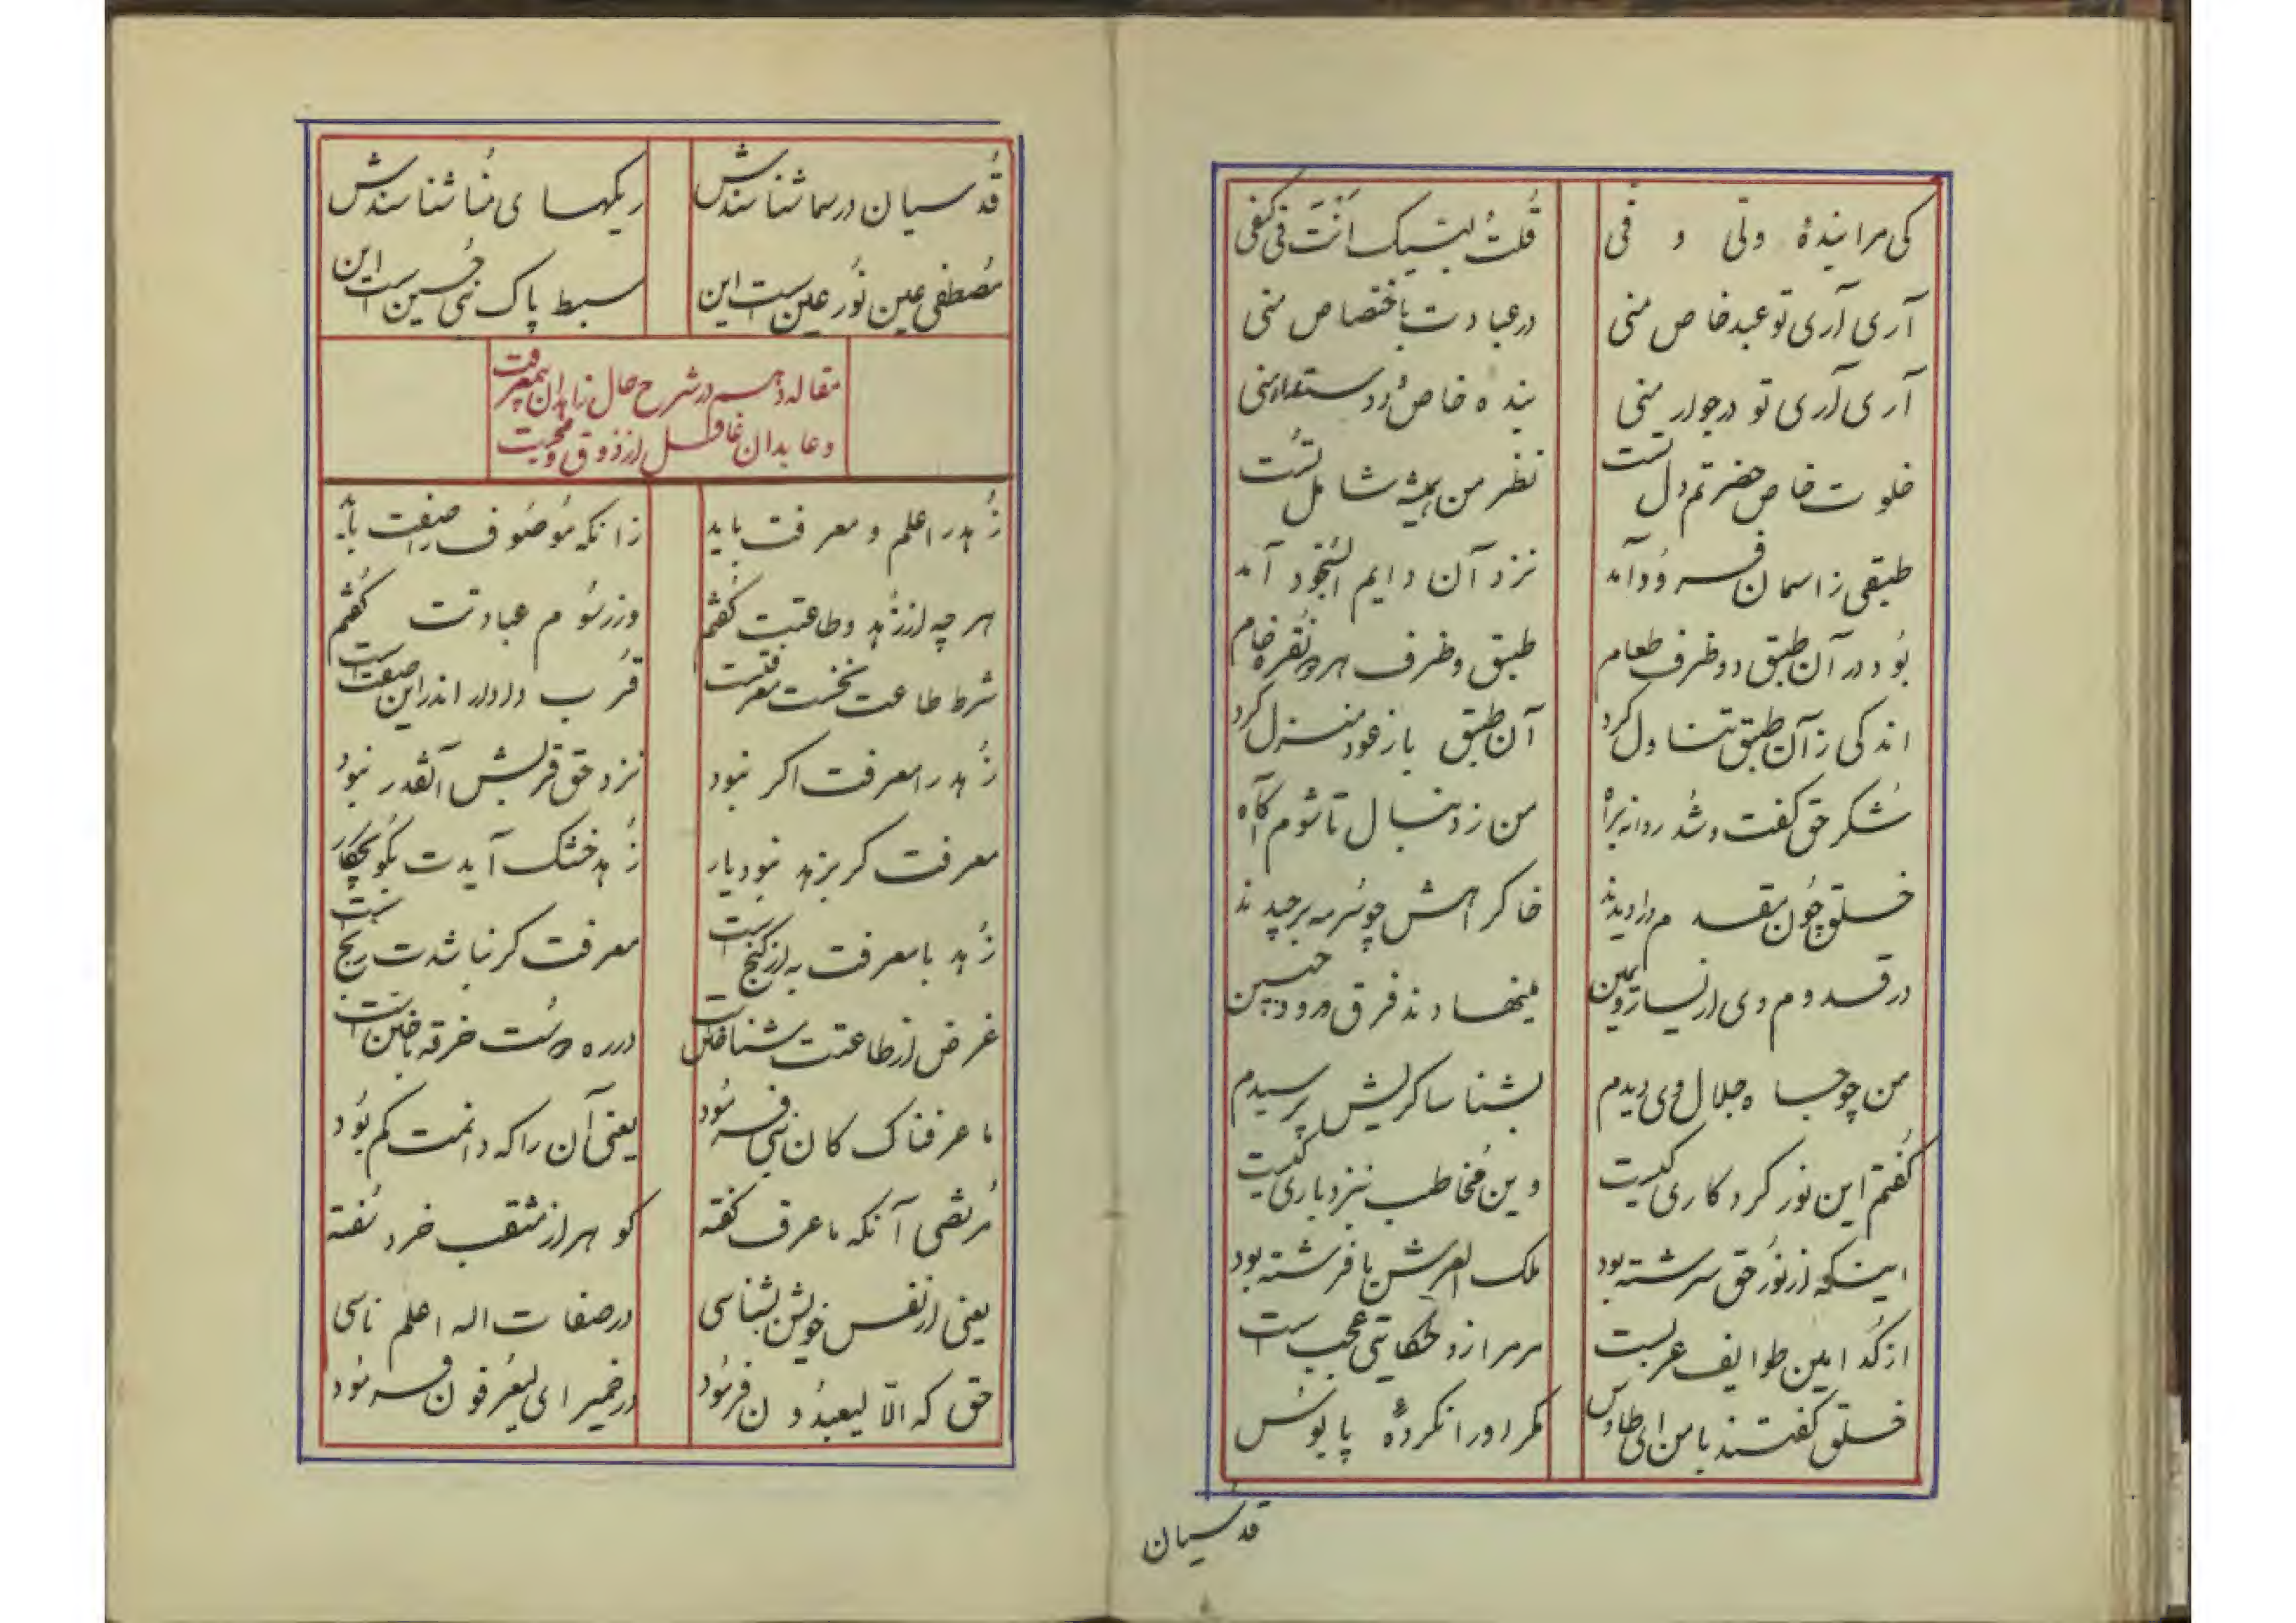 کی مرا بندهٔ ولی و فی
قُلتُ لبیک اَنْتَ فی کنفی
آری آری تو عبد خاص منی
در عبادت باختصاص منی
آری آری تو در جوار منی
بنده خاص
خلوت خاص حضرتم دل تست
نظر من همیشه شامل تُست
طبقی ز اسمان فرود آمد
نزد آن دایم السجود آمد
بُود در آن طبق دو ظرف طعام
طبق و ظرف هر دو نقره خام
اندکی زآن طبق تناول کرد
آن طبق باز عود منزل کرد
شُکر حق گفت و شُد روانه براه
من ز دنبال تا شوم آگاه
خلق چُون مقدم ورا دیدند
خاک راهش چو سُرمه برچیدند
در قدوم وی از یسار و یمین
مینهادند فرق و رو و جبین
من چو جاه جلال وی دیدم
بشناساگریش پرسیدم
گفتم این نور کردکاری کیست
وین مُخاطب بنزد باری کیست
اینکه از نُور حق سرشته بود
ملک العرش یا فرشته بود
از کُدامین طوایف عربست
مر مرا زو حکایتی عجب است
خلق گفتند با من ای طاوس
مگر او را نکردهٔ پابوس
قدسیان
قُدسیان در سما شناسندش
ریکهای منا شناسندش
مُصطفی عین نُور عین است این
سبط پاک نبی حُسین است این
مقاله دهم در شرح حال زاهدان بیمعرفت
و عابدان غافل از ذوق و محبت
زُهد را علم و معرفت باید
زانکه مُوصُوف را صفت باید
هر چه از زُهد و طاعتت گُفتم
وز رسُوم عبادتت گُفتم
شرط طاعت نخست معرفتست
قُرب در اندر این صفت است
زُهد را معرفت اگر نبود
نزد حق قربش آنقدر نبود
معرفت گر بزهد نبود یار
زُهد خشک آیدت بگو بچکار
زُهد با معرفت به از گنج است
معرفت گر نباشدت رنج است
غرض از طاعتت شناختن است
در ره دوست خرقه باختن است
ما عرفناک کان نبی فرسُود
یعنی آن را که دانمت کم بُود
مُرتضی آنکه ما عرف گفته
گوهر از مثقب خرد سُفته
یعنی از نفس خویش بشناسی
در صفات اله اعلم ناسی
حق که الّا لیعبدُون فرمُود
در ضمیر ای لیعرفون فرمُود